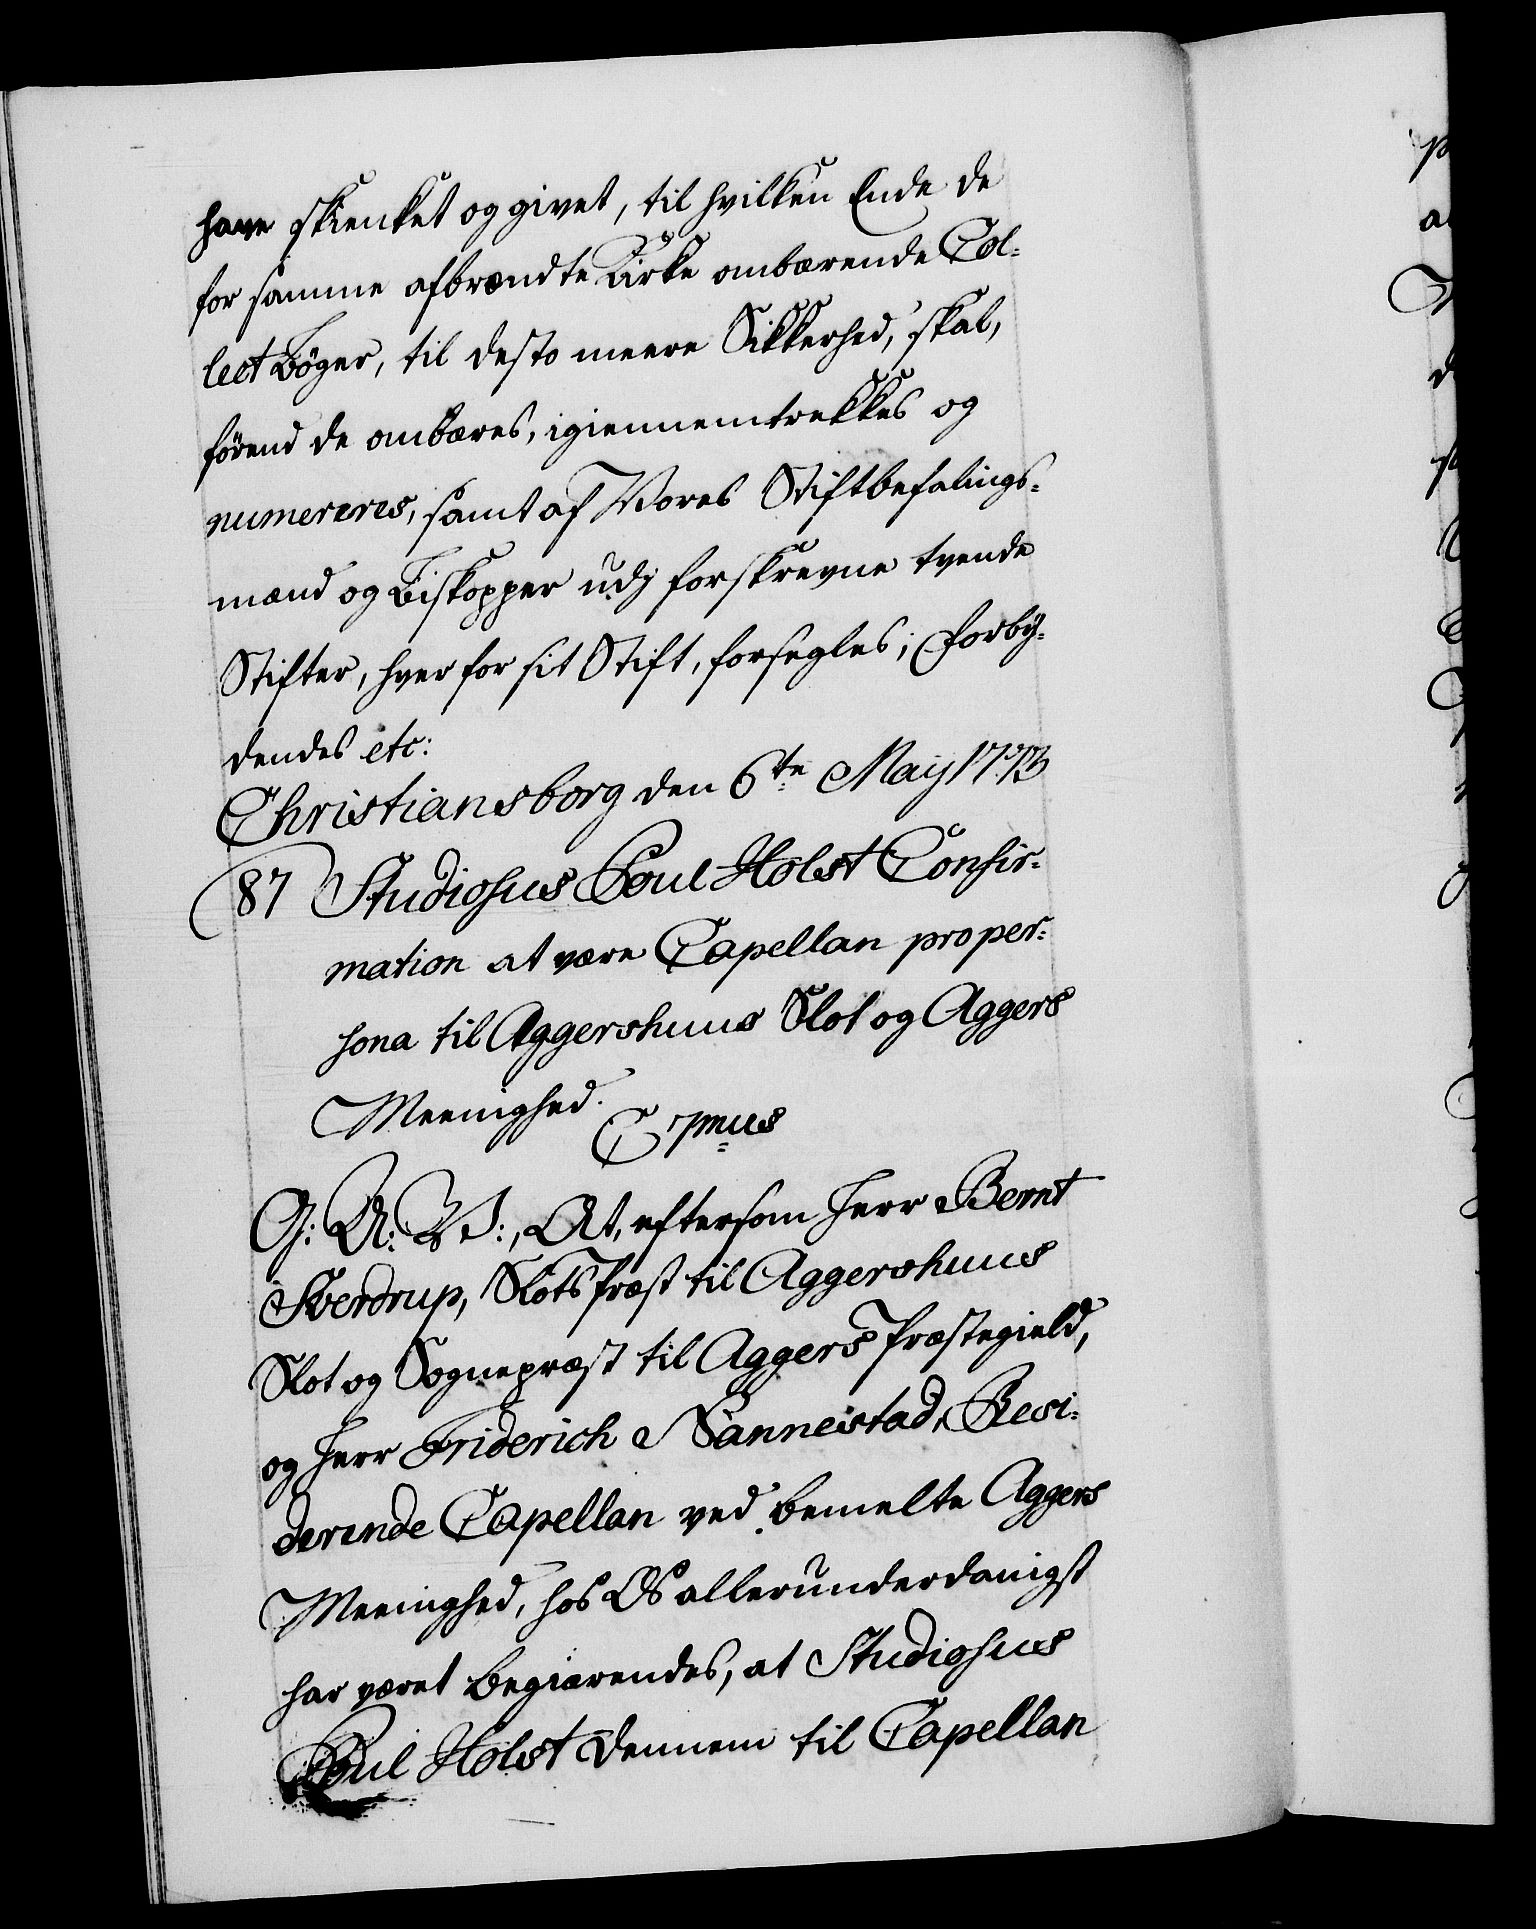 have skienket og givet, til hvilken Ende de
for samme afbrændte Kirke ombærende Col-
lect Bøger, til desto meere Sikkerhed, skal,
førend de ombæres, igiennemtrekkes og
numereres, samt af Vores Stiftbefalings-
mænd og Biskopper udj forskrevne tvende
Stifter, hver for sit Stift, forsegles; Forby-
dendes etc:
Christiansborg den 6te May 1773
87 Studiosus Poul Holst Confir-
mation at være Capellan proper-
sona til Aggershuus Slot og Aggers
Meenighed.
C 7mus
G: A: V:, At, eftersom Herr Bernt
Sverdrup, Slots Præst til Aggershuus
Slot og Sognepræst til Aggers Præstegield,
og Herr Friderich Nannestad, Resi-
derende Capellan ved bemelte Aggers
Meenighed, hos Os allerunderdanigst
har været begiærendes, at Studiosus
Poul Holst dennem til Capellan